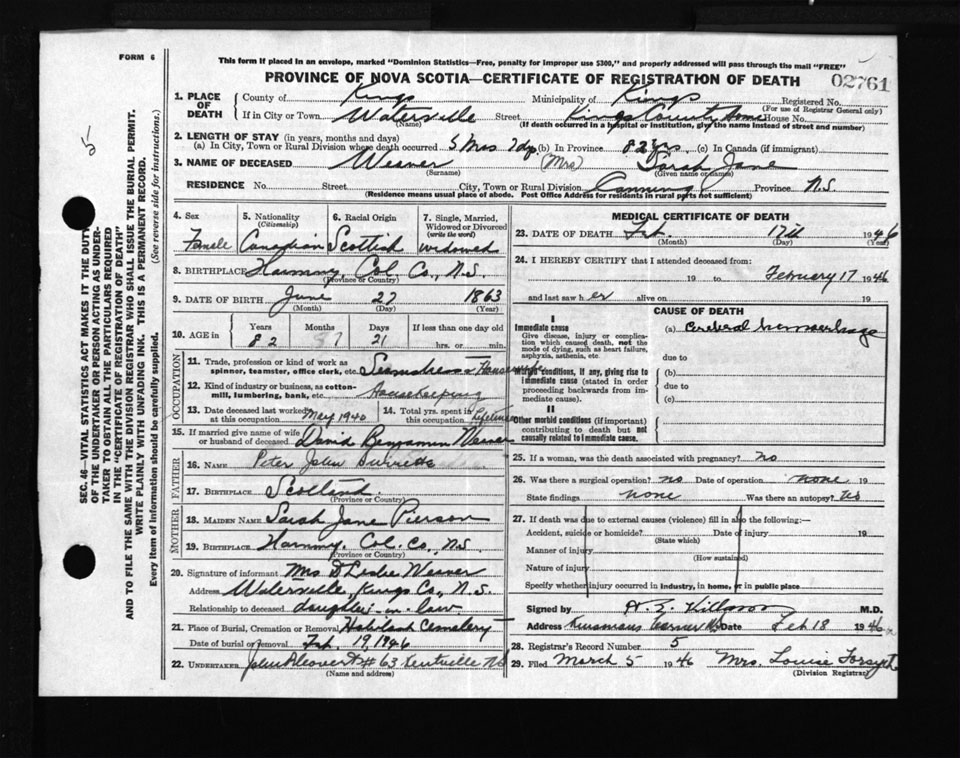 FORM 6
This form if placed in an envelope, marked "Dominion Statistics—Free, penalty for improper use $300," and properly addressed will pass through the mail "FREE"
PROVINCE OF NOVA SCOTIA—CERTIFICATE OF REGISTRATION OF DEATH
02761
5
SEC. 46—VITAL STATISTICS ACT MAKES IT THE DUTY
OF THE UNDERTAKER OR PERSON ACTING AS UNDER-
TAKER TO OBTAIN ALL THE PARTICULARS REQUIRED
IN THE "CERTIFICATE OF REGISTRATION OF DEATH"
AND TO FILE THE SAME WITH THE DIVISION REGISTRAR WHO SHALL ISSUE THE BURIAL PERMIT.
WRITE PLAINLY WITH UNFADING INK. THIS IS A PERMANENT RECORD.
Every item of information should be carefully supplied. (See reverse side for instructions.)
1. PLACE OF DEATH County of Kings Municipality of Kings Registered No.
(For use of Registrar General only)
If in City or Town Waterville Street Kings County Home House No.
(Name) (If death occurred in a hospital or institution, give the name instead of street and number)
2. LENGTH OF STAY (in years, months and days)
(a) In City, Town or Rural Division where death occurred 5 Mos 7 dys (b) In Province 82 yrs. (c) In Canada (if immigrant)
3. NAME OF DECEASED Weaver (Mrs) Sarah Jane
(Surname) (Given name or names)
RESIDENCE No. Street City, Town or Rural Division Canning Province N.S.
(Residence means usual place of abode. Post Office Address for residents in rural parts not sufficient)
4. Sex 5. Nationality (Citizenship) 6. Racial Origin 7. Single, Married, Widowed or Divorced (write the word)
Female Canadian Scottish widowed
8. BIRTHPLACE Harmony, Col. Co., N.S.
(Province or Country)
9. DATE OF BIRTH June 27 1863
(Month) (Day) (Year)
10. AGE in Years Months Days If less than one day old
82 7 21 hrs. or min.
OCCUPATION
11. Trade, profession or kind of work as spinner, teamster, office clerk, etc. Seamstress & Housewife
12. Kind of industry or business, as cotton-mill, lumbering, bank, etc. Housekeeping
13. Date deceased last worked at this occupation May 1940 14. Total yrs. spent in this occupation Lifetime
15. If married give name of wife or husband of deceased David Benjamin Weaver
FATHER
16. NAME Peter John
17. BIRTHPLACE Scotland
(Province or Country)
MOTHER
18. MAIDEN NAME Sarah Jane Pierson
19. BIRTHPLACE Harmony, Col. Co., N.S.
(Province or Country)
20. Signature of informant Mrs D Leslie Weaver
Address Waterville, Kings Co., N.S.
Relationship to deceased daughter-in-law
21. Place of Burial, Cremation or Removal Cemetery
Date of burial or removal Feb. 19, 1946
22. UNDERTAKER # 63 Kentville NS
(Name and address)
MEDICAL CERTIFICATE OF DEATH
23. DATE OF DEATH Feb. 17th 1946
(Month) (Day) (Year)
24. I HEREBY CERTIFY that I attended deceased from:
19 to February 17 1946
and last saw her alive on 19
CAUSE OF DEATH
I
Immediate cause
Give disease, injury or complication which caused death, not the mode of dying, such as heart failure, asphyxia, asthenia, etc.
(a) Cerebral hemorrhage
due to
Morbid conditions, if any, giving rise to immediate cause (stated in order proceeding backwards from immediate cause).
(b)
due to
(c)
II
Other morbid conditions (if important) contributing to death but not causally related to immediate cause.
25. If a woman, was the death associated with pregnancy? no
26. Was there a surgical operation? no Date of operation none 19
State findings none Was there an autopsy? no
27. If death was due to external causes (violence) fill in also the following:—
Accident, suicide or homicide? Date of injury 19
(State which)
Manner of injury
(How sustained)
Nature of injury
Specify whether injury occurred in industry, in home, or in public place
Signed by M.D.
Address Date Feb 18 1946
28. Registrar's Record Number 5
29. Filed March 5 1946 Mrs. Louise Forsyth
(Division Registrar)